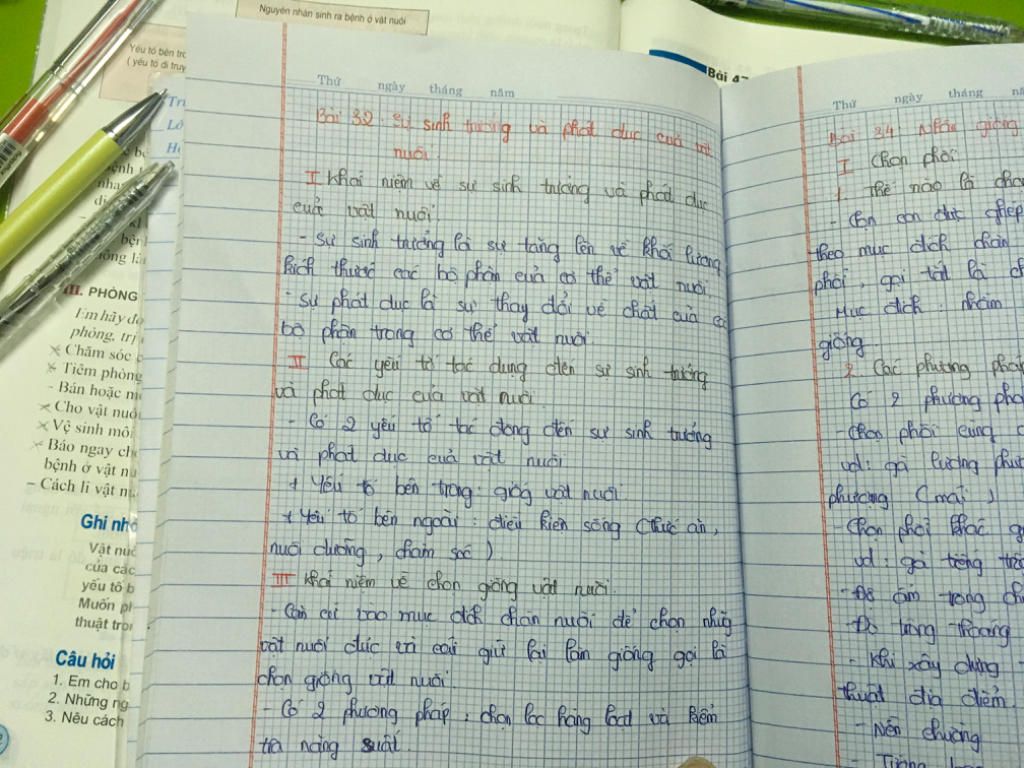 Nguyên nhân sinh ra bệnh ở vật nuôi
Yếu tố bên
( yếu tố di
Bài
III. PHÒNG
Em hãy
phòng, trị
Chăm sóc
Tiêm phòng
- Bán hoặc
Cho vật
Vệ sinh
Báo ngay
bệnh ở vật
- Cách li vật
Ghi
Vật
của các
yếu tố
Muốn
thuật
Câu hỏi
1. Em cho
2. Những
3. Nêu cách
Thứ ngày tháng năm
Bài 32. Sự sinh trưởng và phát dục của vật
nuôi.
I Khái niệm về sự sinh trưởng và phát dục
của vật nuôi.
- Sự sinh trưởng là sự tăng lên về khối lượng
kích thước các bộ phận của cơ thể vật nuôi
- Sự phát dục là sự thay đổi về chất của
bộ phận trong cơ thể vật nuôi.
II Các yếu tố tác dụng đến sự sinh trưởng
và phát dục của vật nuôi.
- Có 2 yếu tố tác động đến sự sinh trưởng
và phát dục của vật nuôi
+ Yếu tố bên trong: giống vật nuôi
+ Yếu tố bên ngoài : điều kiện sống (thức ăn,
nuôi dưỡng, chăm sóc)
III Khái niệm về chọn giống vật nuôi.
- Căn cứ vào mục đích chăn nuôi để chọn những
vật nuôi đực và cái giữ lại làm giống gọi là
chọn giống vật nuôi.
- Có 2 phương pháp : chọn lọc hàng loạt và kiểm
tra năng suất.
Thứ ngày tháng
Bài 34: Nhân giống
I Chọn phối
1. Thế nào là
- Chọn con đực ghép
theo mục đích chăn
phối, gọi tắt là
Mục đích : nhằm
giống.
2 Các phương pháp
Có 2 phương
- Chọn phối cùng
vd: gà lương
phượng (mái)
- Chọn phối khác
vd: gà trống
- Độ ẩm trong
- Độ thông thoáng
- Khi xây dựng
thuật địa điểm.
- Nền chuồng